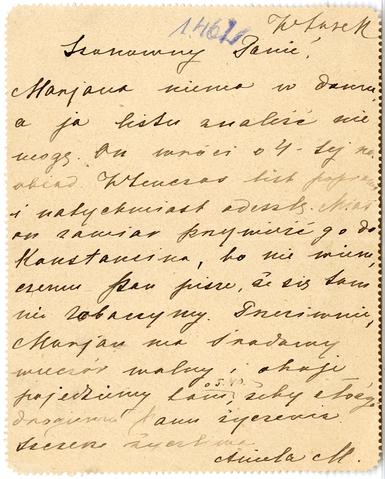 Wtorek
1462
Szanowny Panie,
Marjana niema w domu,
a ja listu znaleść nie
mogę. On wróci o 4-tej na
obiad. Wtenczas list poproszę
i natychmiast odeszlę. Miał
on zamiar przywieść go do
Konstancina, bo nie wiem,
czemu Pan pisze, że się tam
nie zobaczymy. Przeciwnie,
Marjan ma środowy
wieczór wolny i oboje
pojedziemy tam, żeby złożyć
drogiemu Panu życzenia
szczerze życzliwa
Aniela M.